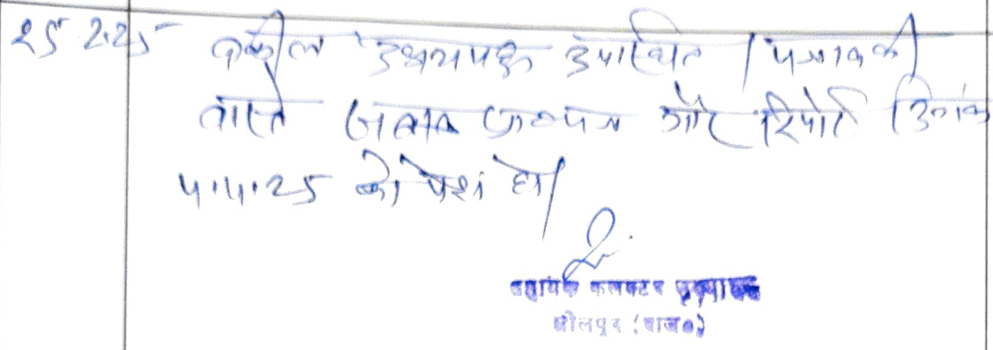 25.2.25 वकील उभयपक्ष उपस्थित। पत्रावली
वास्ते जवाब प्रा०पत्र और रिपोर्ट दिनांक
4.4.25 को पेश हो।
सहायक कलक्टर
धौलपुर (राज०)